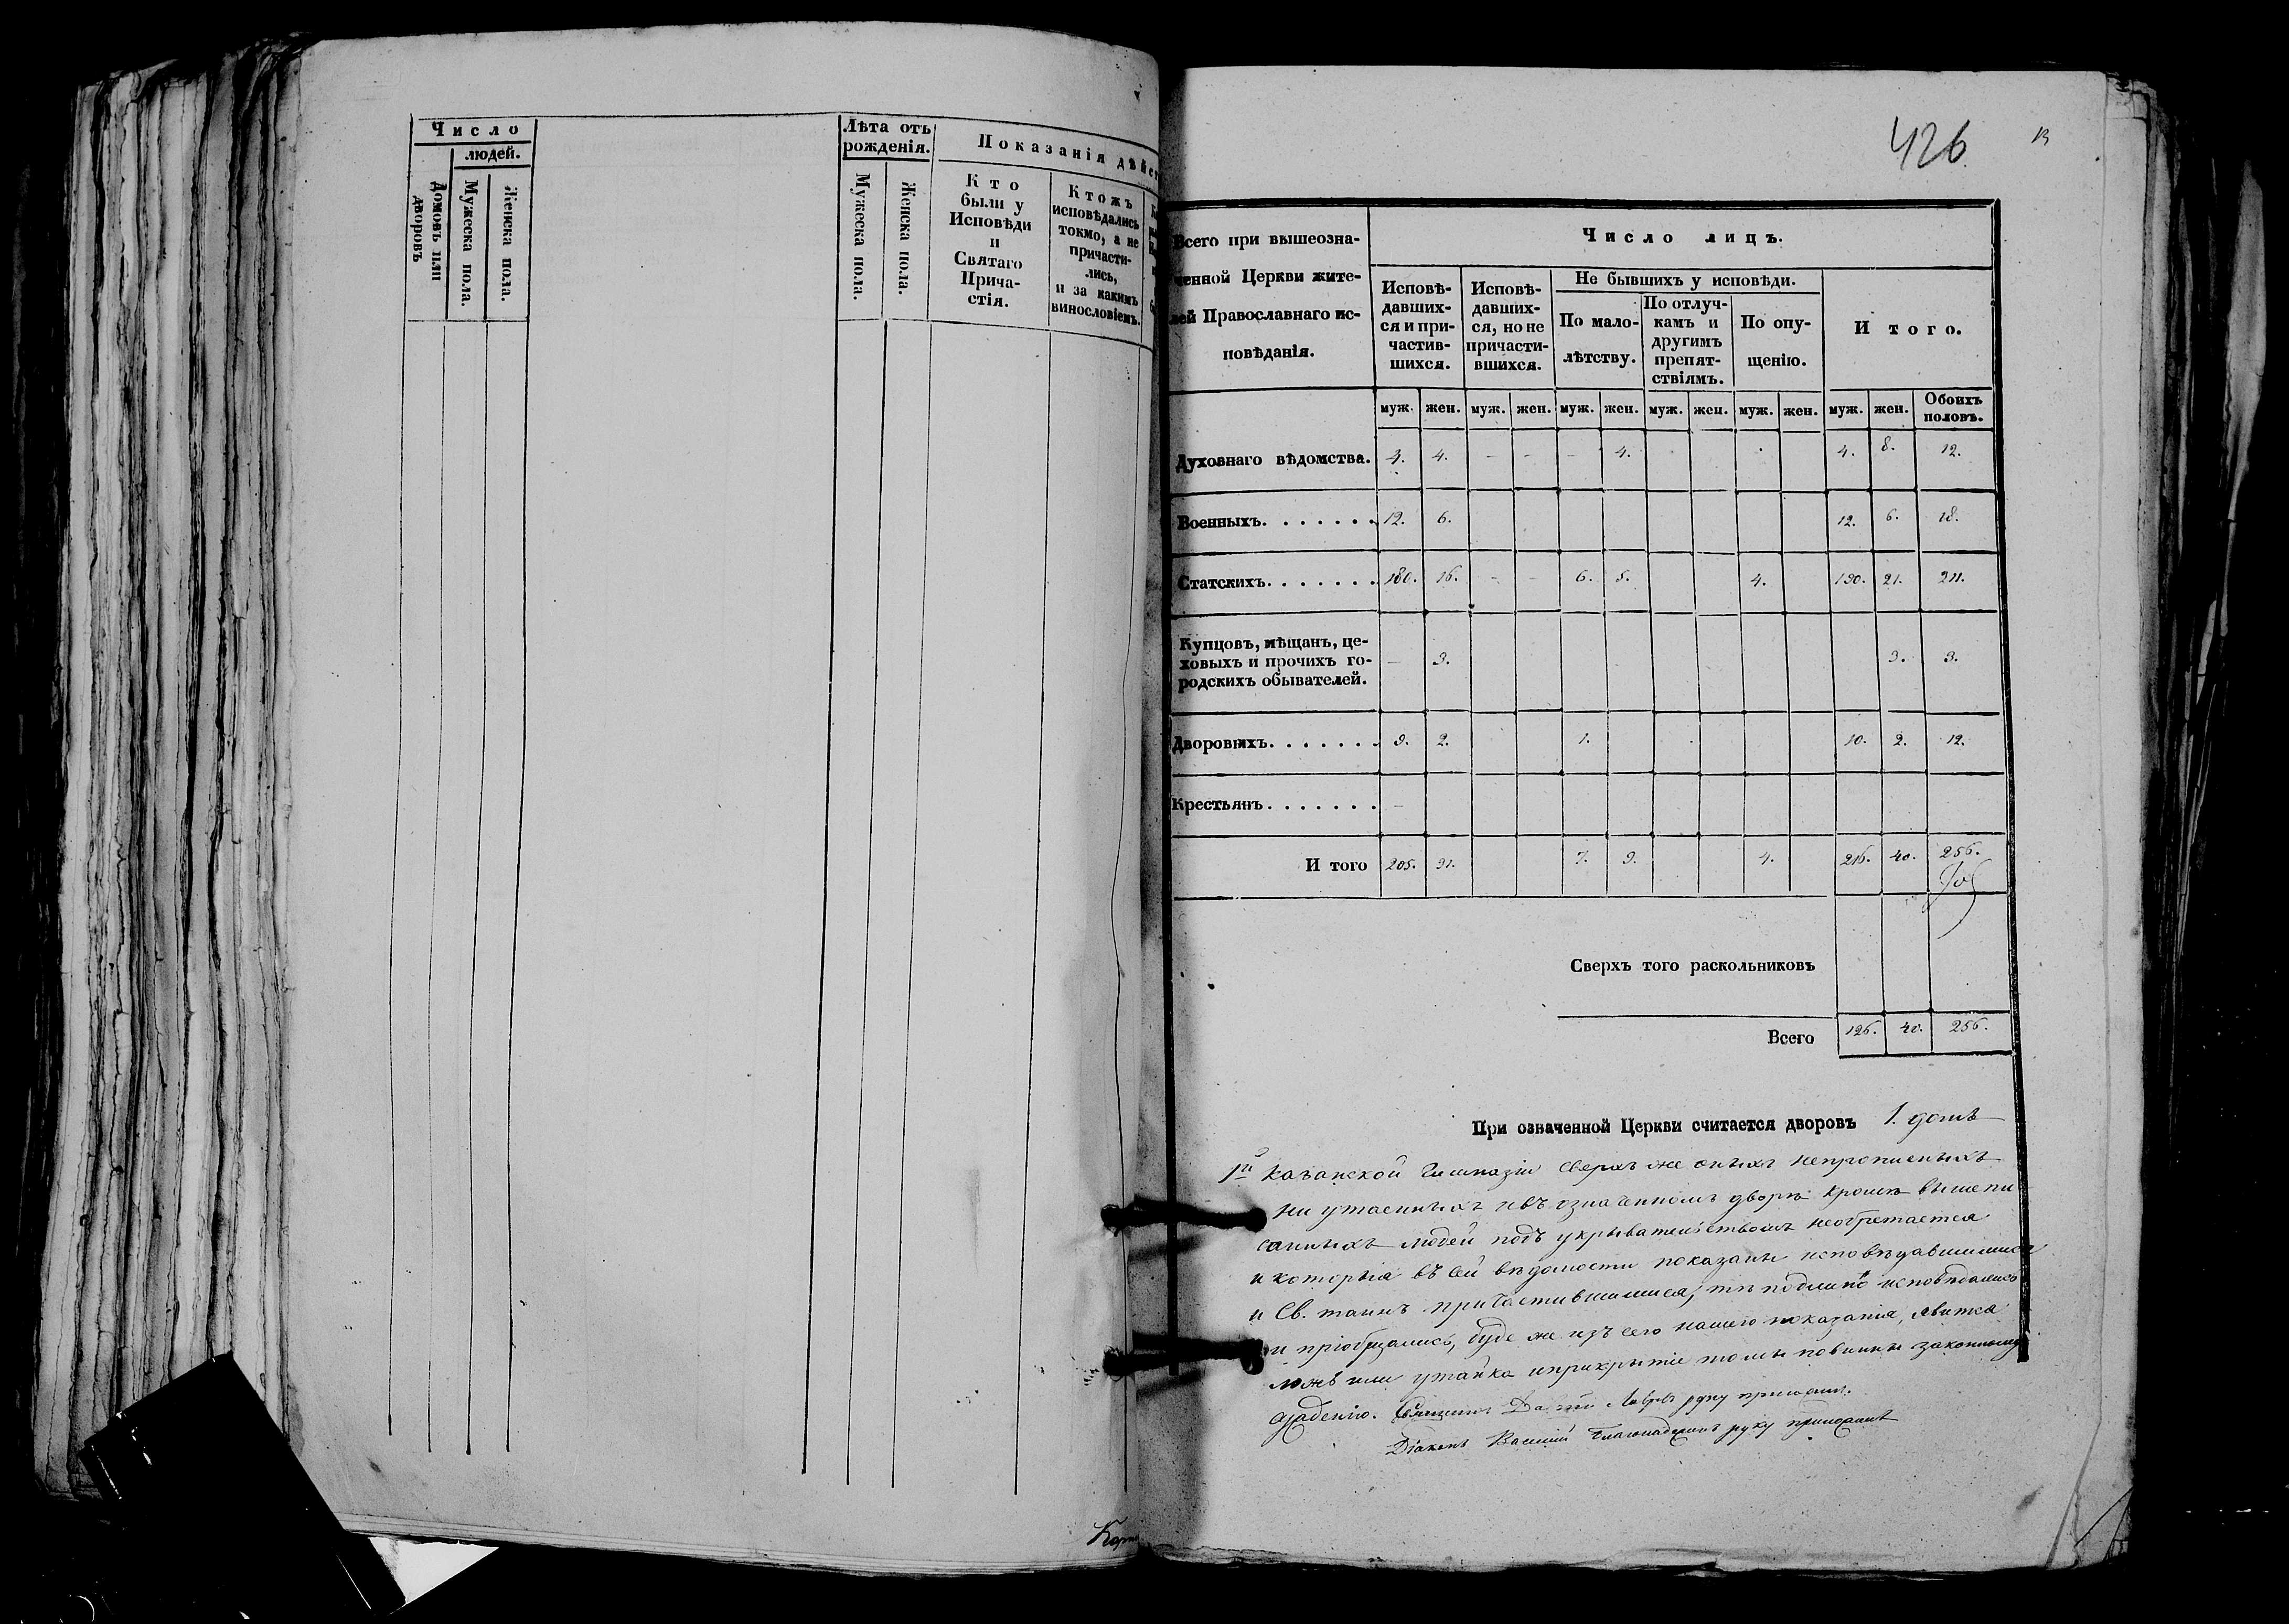 Число
людей.
Домовъ или дворовъ
Мужеска пола.
Женска пола.
Лѣта отъ рожденія.
Мужеска пола.
Женска пола.
Показанія дѣйс
Кто
были у
Исповѣди
и
Святаго
Прича-
стія.
Ктожъ
исповѣдались
токмо, а не
причасти-
лись,
и за какимъ
винословіемъ.
426
Всего при вышеозна-
ченной Церкви жите-
лей Православнаго ис-
повѣданія.
Число лицъ.
Исповѣ-
давших-
ся и при-
частив-
шихся.
Исповѣ-
давших-
ся, но не
причасти-
вшихся.
Не бывшихъ у исповѣди.
По мало-
лѣтству.
По отлуч-
камъ и
другимъ
препят-
ствіямъ.
По опу-
щенію.
И того.
муж. жен. муж. жен. муж. жен. муж. жен. муж. жен. муж. жен. Обоихъ половъ.
Духовнаго вѣдомства. 4. 4. - - - 4. 4. 8. 12.
Военныхъ. . . . . . . 12. 6. 12. 6. 18.
Статскихъ. . . . . . . 180. 16. - - 6. 5. 4. 190. 21. 211.
Купцовъ, мѣщанъ, це-
ховыхъ и прочихъ го-
родскихъ обывателей. — 3. 3. 3.
Дворовыхъ. . . . . . . 9. 2. 1. 10. 2. 12.
Крестьянъ. . . . . . . —
И того 205. 31. 7. 9. 4. 216. 40. 256.
Сверхъ того раскольниковъ
Всего 126. 40. 256.
При означенной Церкви считается дворовъ 1. домъ
1й Казанской Гимназіи сверхъ же оныхъ непрописныхъ
ни утаенныхъ и въ означенномъ дворѣ кромѣ вышепи
санныхъ людей подъ укрывательствомъ необретается
и которыя въ сей вѣдомости показаны исповѣдавшимися
и Св. таинъ причастившимися, тѣ подлинно исповѣдались
и пріобщались, буде же изъ сего нашего показанія, явится
ложь или утайка и прикрытіе то мы повинны законному
суждению. Священникъ руку приложилъ.
Діаконъ Василій руку приложилъ